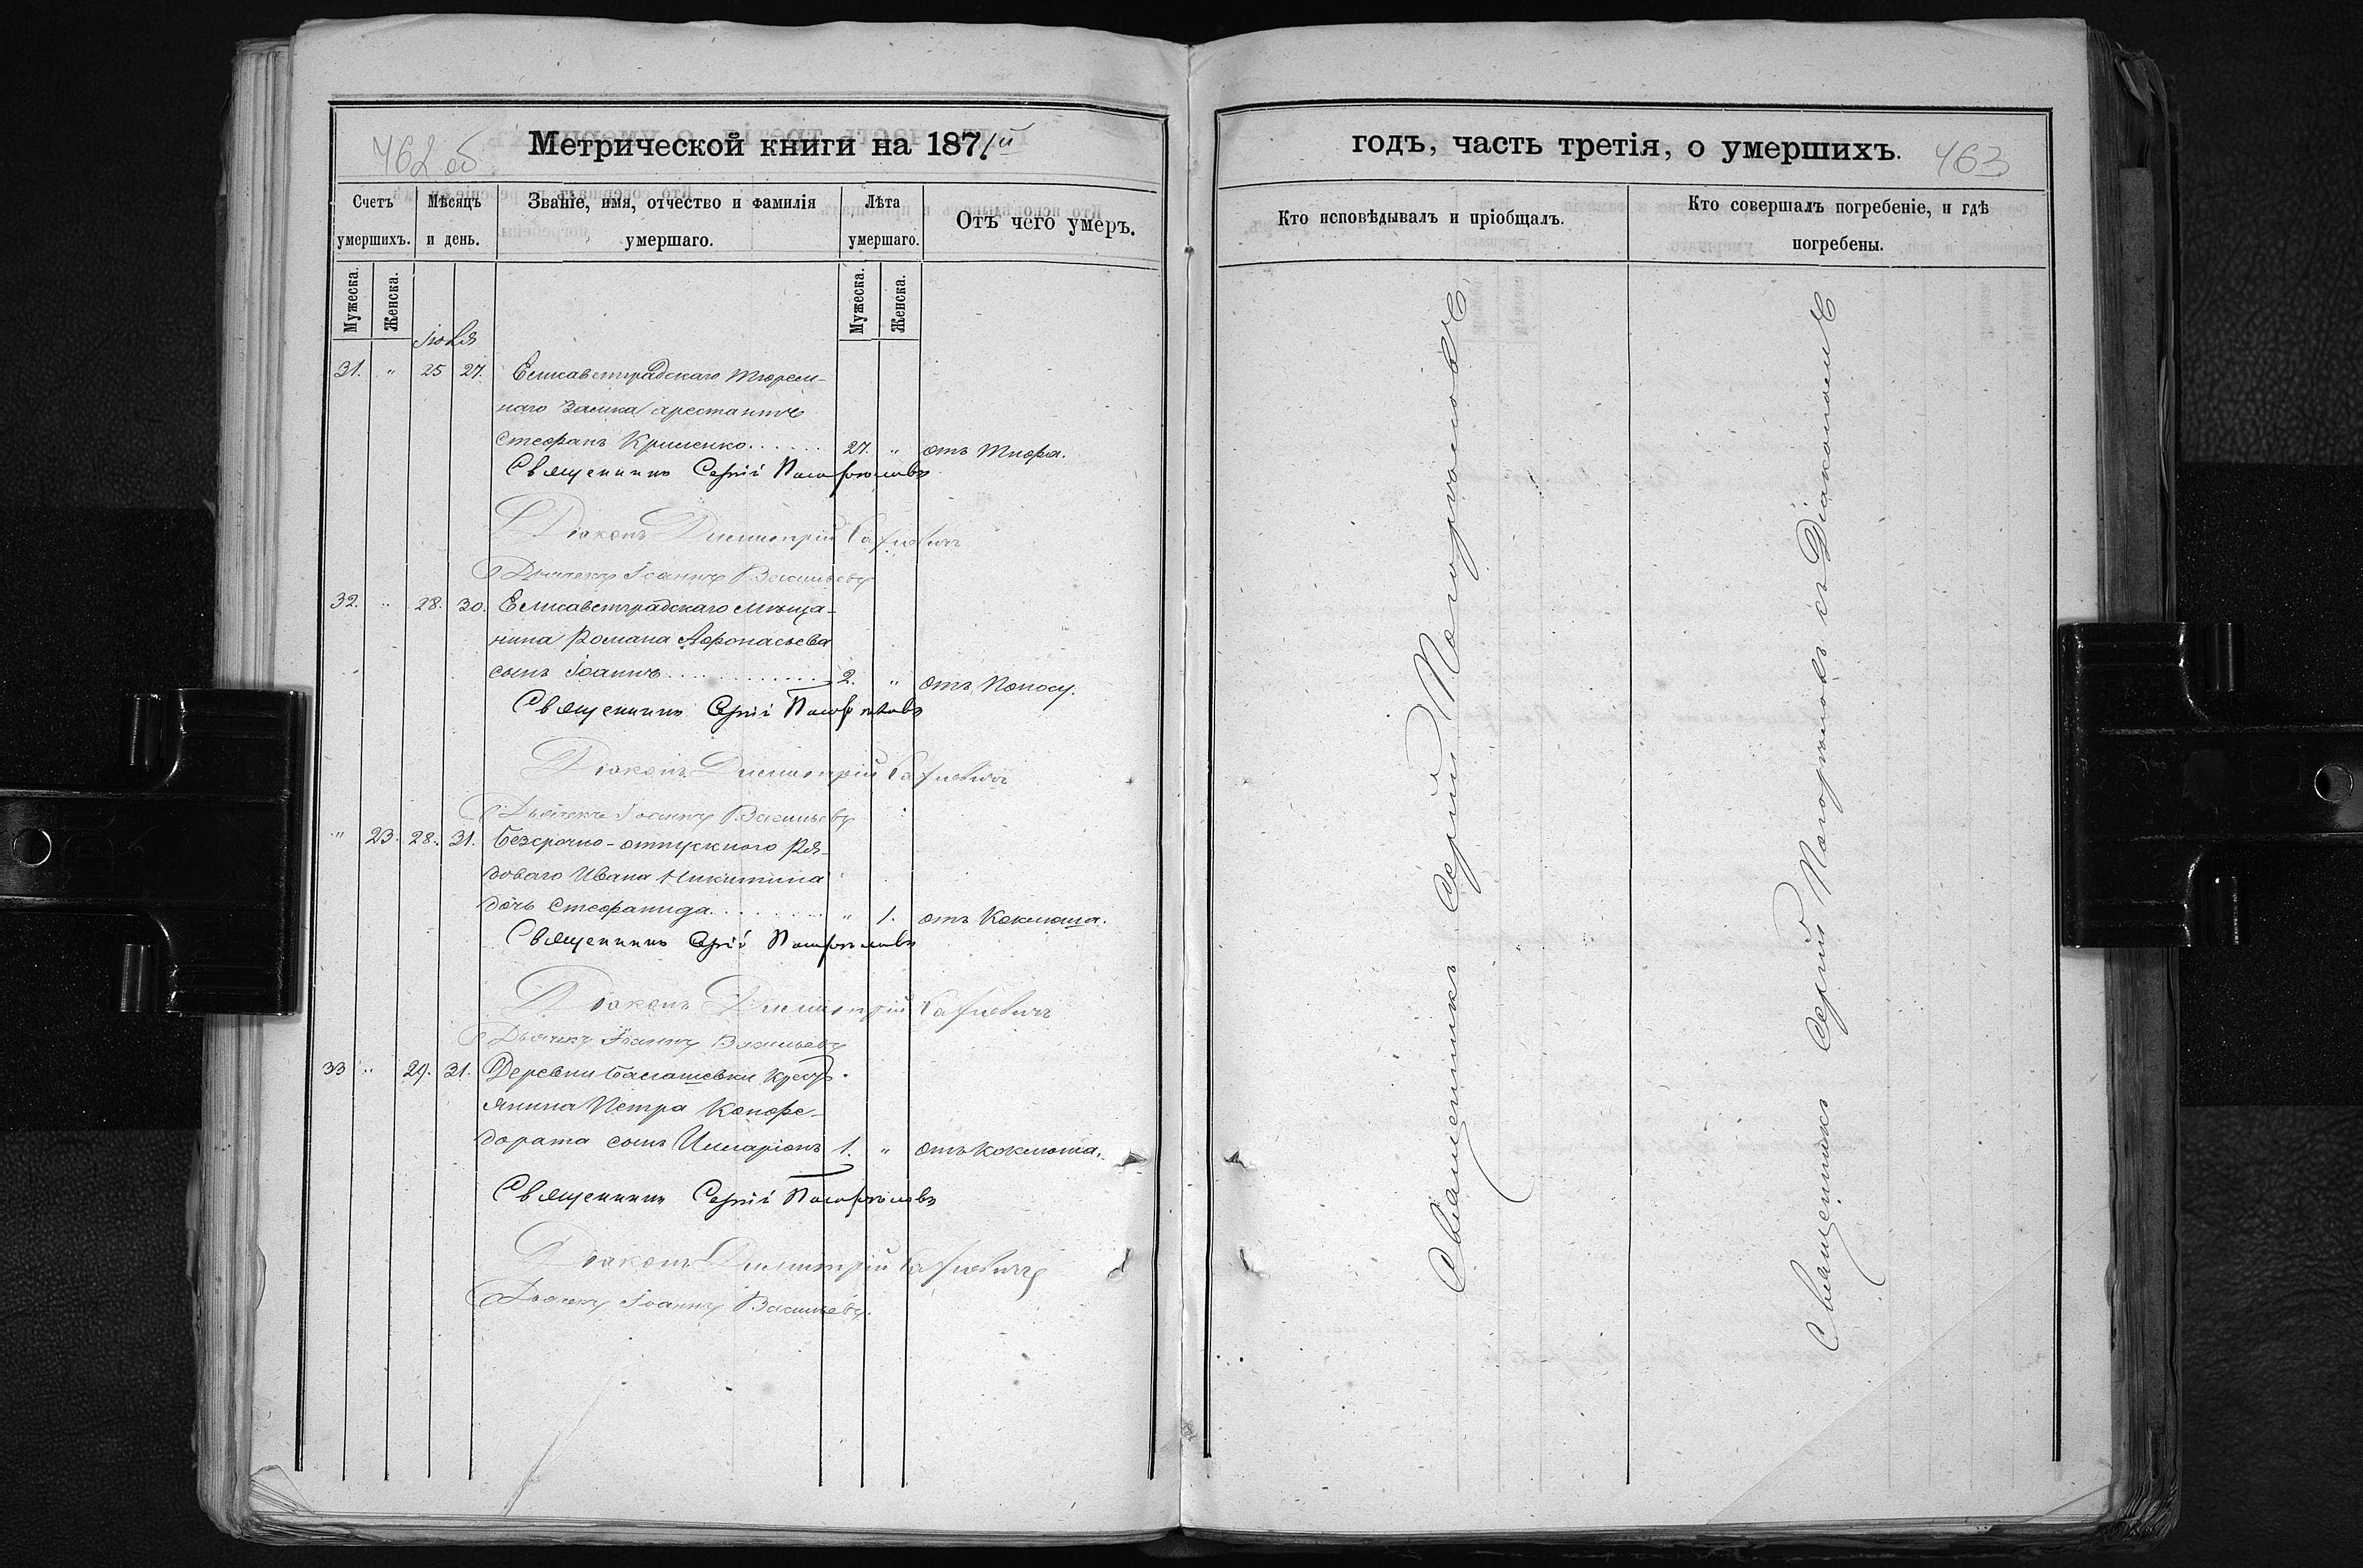 462 об
Метрической книги на 1871й
Счетъ умершихъ.
Мѣсяцъ и день.
Званіе, имя, отчество и фамилія умершаго.
Лѣта умершаго.
Отъ чего умеръ.
Мужеска.
Женска.
Мужеска.
Женска.
Іюля
31. " 25 27. Елисаветградскаго тюрем-
наго замка арестантъ
Стефанъ Клименко...... 27. " отъ тифа.
Священникъ Сергій
Діаконъ Димитрій
Дьячекъ Іоаннъ Васильевъ
32. " 28. 30. Елисаветградскаго мѣща-
нина Романа Афонасьева
сынъ Іоаннъ............ 2. " отъ поносу.
Священникъ Сергій
Діаконъ Димитрій
Дьячекъ Іоаннъ Васильевъ
" 23. 28. 31. Безсрочно-отпускного ря-
доваго Ивана Никитина
дочь Стефанида........ " 1. отъ коклюша.
Священникъ Сергій
Діаконъ Димитрій
Дьячекъ Іоаннъ Васильевъ
33 " 29. 31. Деревни Балашевки крест-
янина Петра
сынъ Илларіонъ 1. " отъ коклюша.
Священникъ Сергій
Діаконъ Димитрій
Дьячекъ Іоаннъ Васильевъ.
годъ, часть третія, о умершихъ.
463
Кто исповѣдывалъ и пріобщалъ.
Кто совершалъ погребеніе, и гдѣ погребены.
Священникъ Сергій
Священникъ Сергій съ Діакономъ